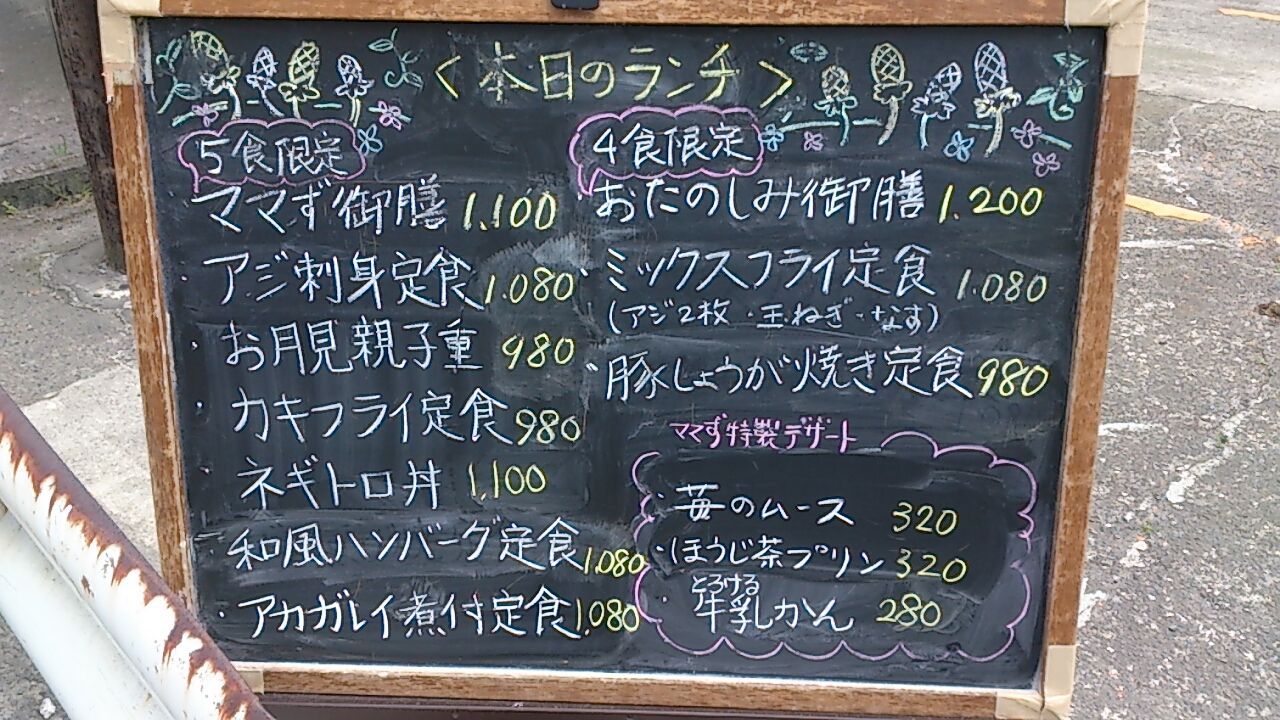 <本日のランチ>
5食限定
ママず御膳 1,100
・アジ刺身定食 1.080
・お月見親子重 980
・カキフライ定食 980
・ネギトロ丼 1,100
和風ハンバーグ定食 1.080
・アカガレイ煮付定食 1,080
4食限定
おたのしみ御膳 1.200
・ミックスフライ定食 1.080
(アジ2枚・玉ねぎ・なす)
・豚しょうが焼き定食 980
ママず特製デザート
・苺のムース 320
・ほうじ茶プリン 320
とろける
・牛乳かん 280